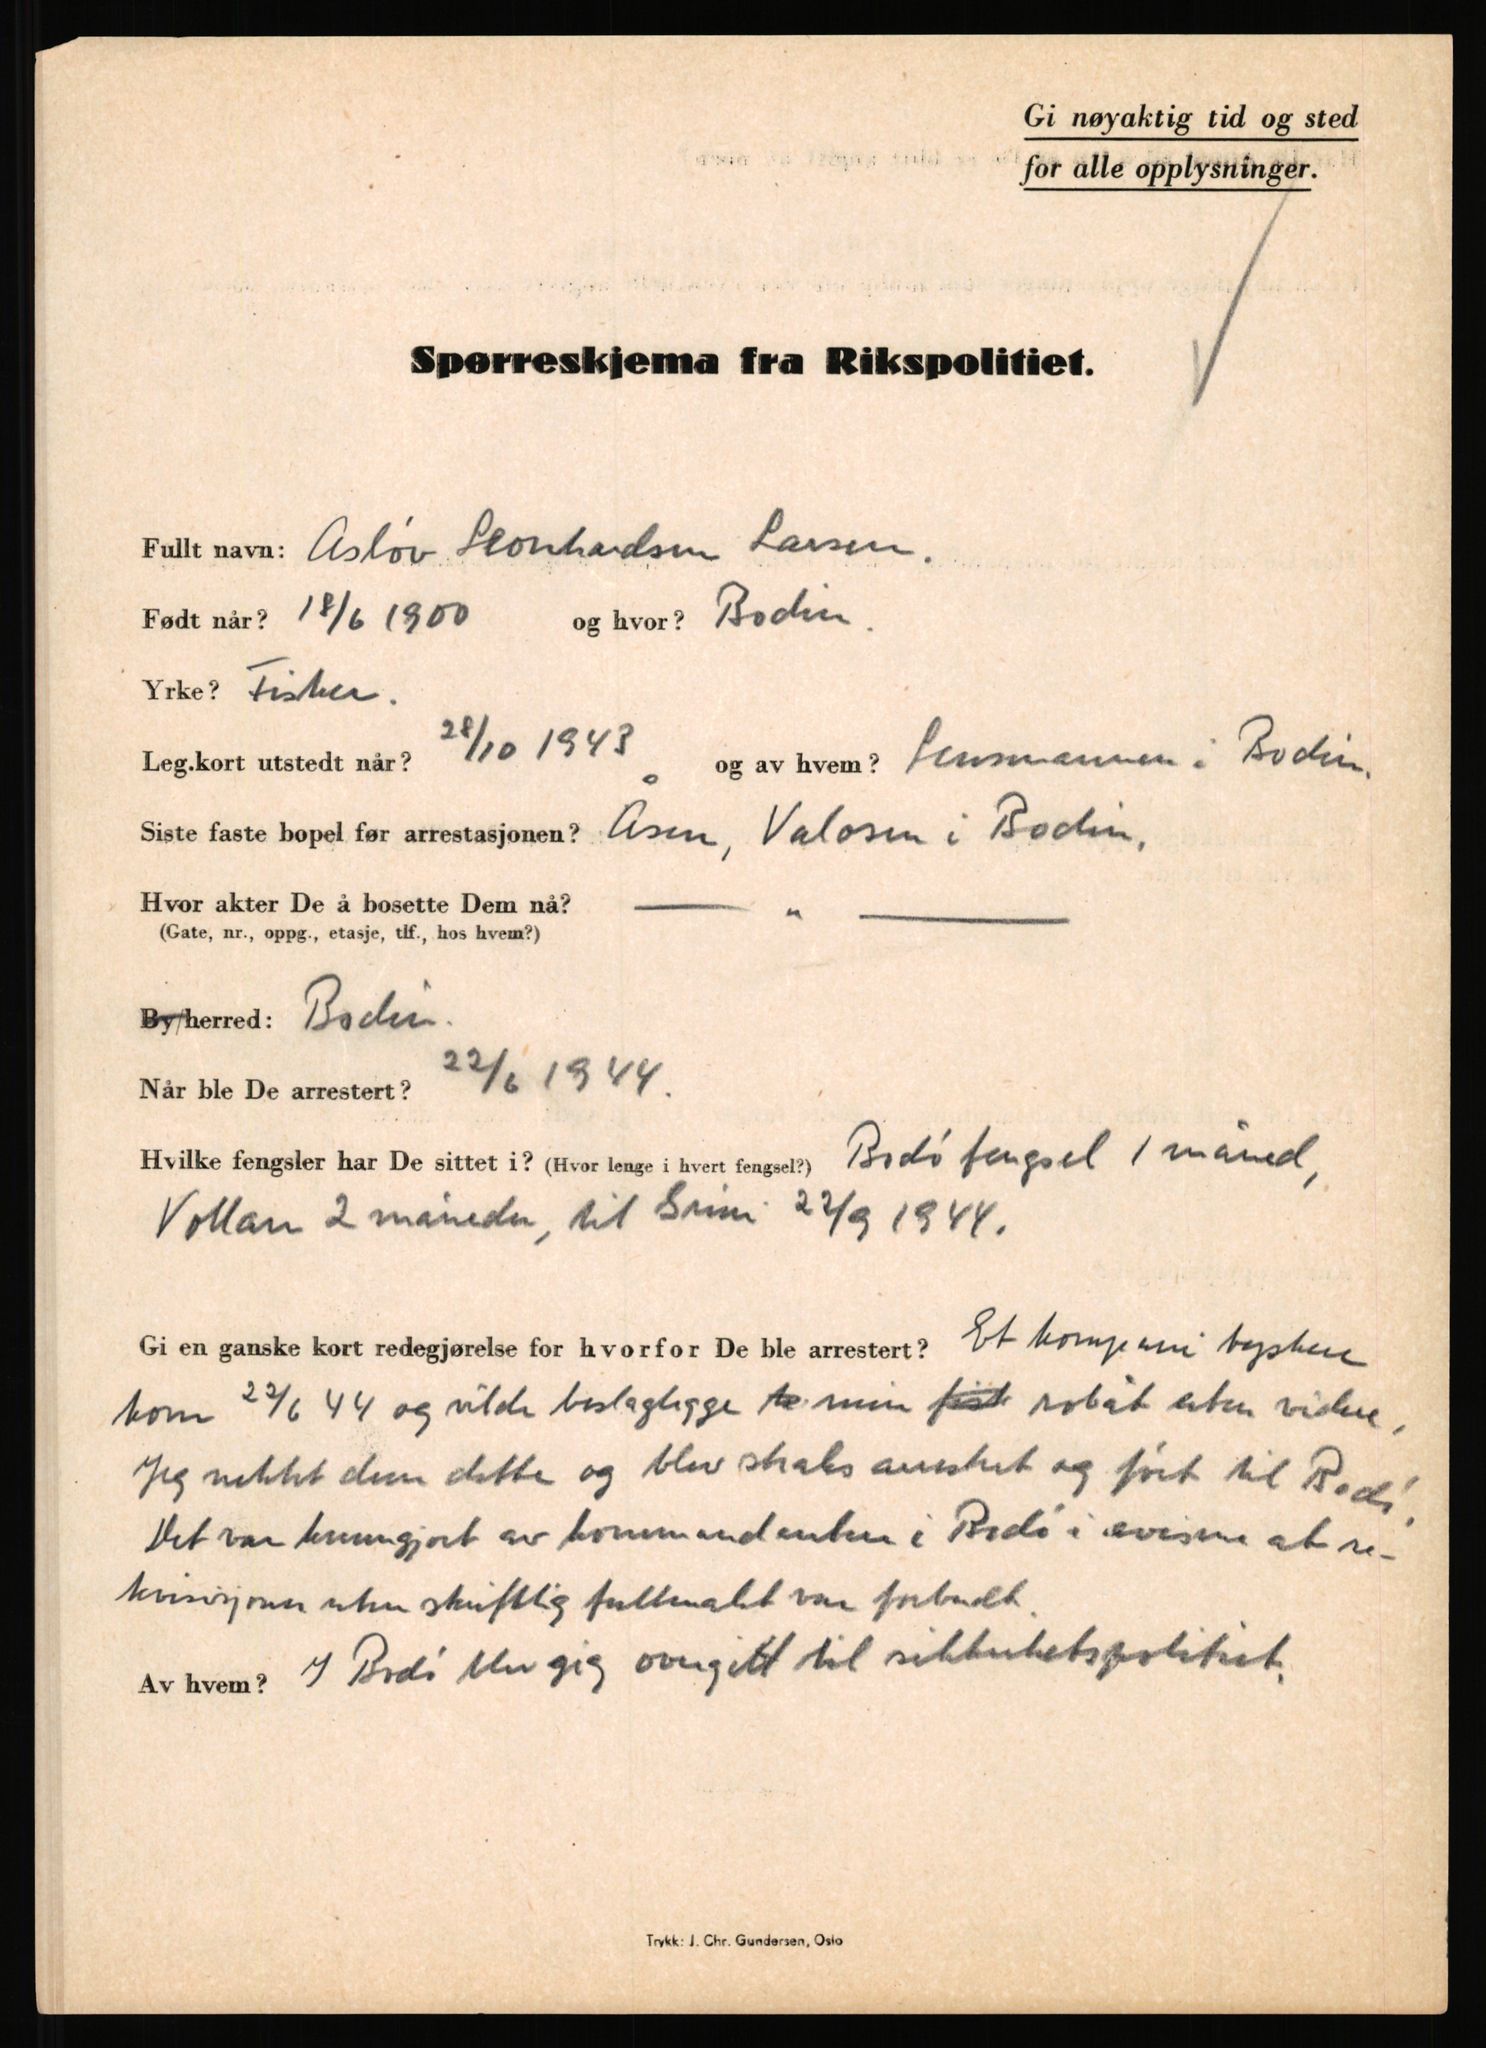 Gi nøyaktig tid og sted
for alle opplysninger.
Spørreskjema fra Rikspolitiet.
Fullt navn: Asløv Leonhardsen Larsen.
Født når? 18/6 1900 og hvor? Bodin.
Yrke? Fisker.
Leg.kort utstedt når? 28/10 1943 og av hvem? Lensmannen i Bodin.
Siste faste bopel før arrestasjonen? Åsen, Valosen i Bodin.
Hvor akter De å bosette Dem nå? — " —
(Gate, nr., oppg., etasje, tlf., hos hvem?)
By/herred: Bodin.
Når ble De arrestert? 22/6 1944.
Hvilke fengsler har De sittet i? (Hvor lenge i hvert fengsel?) Bodó fengsel 1 måned,
Vollan 2 måneder, til Grini 22/9 1944.
Gi en ganske kort redegjørelse for hvorfor De ble arrestert? Et kompani tyskere
kom 22/6 44 og vilde beslaglegge min robåt uten videre.
Jeg nektet dem dette og blev straks arrestert og fórt til Bodó.
Det var kunngjort av kommandanten i Bodó i avisene at re-
kvisisjoner uten skriftlig fullmakt var forbudt.
Av hvem? I Bodó blev jeg overgitt til sikkerhetspolitiet.
Trykk: J. Chr. Gundersen, Oslo